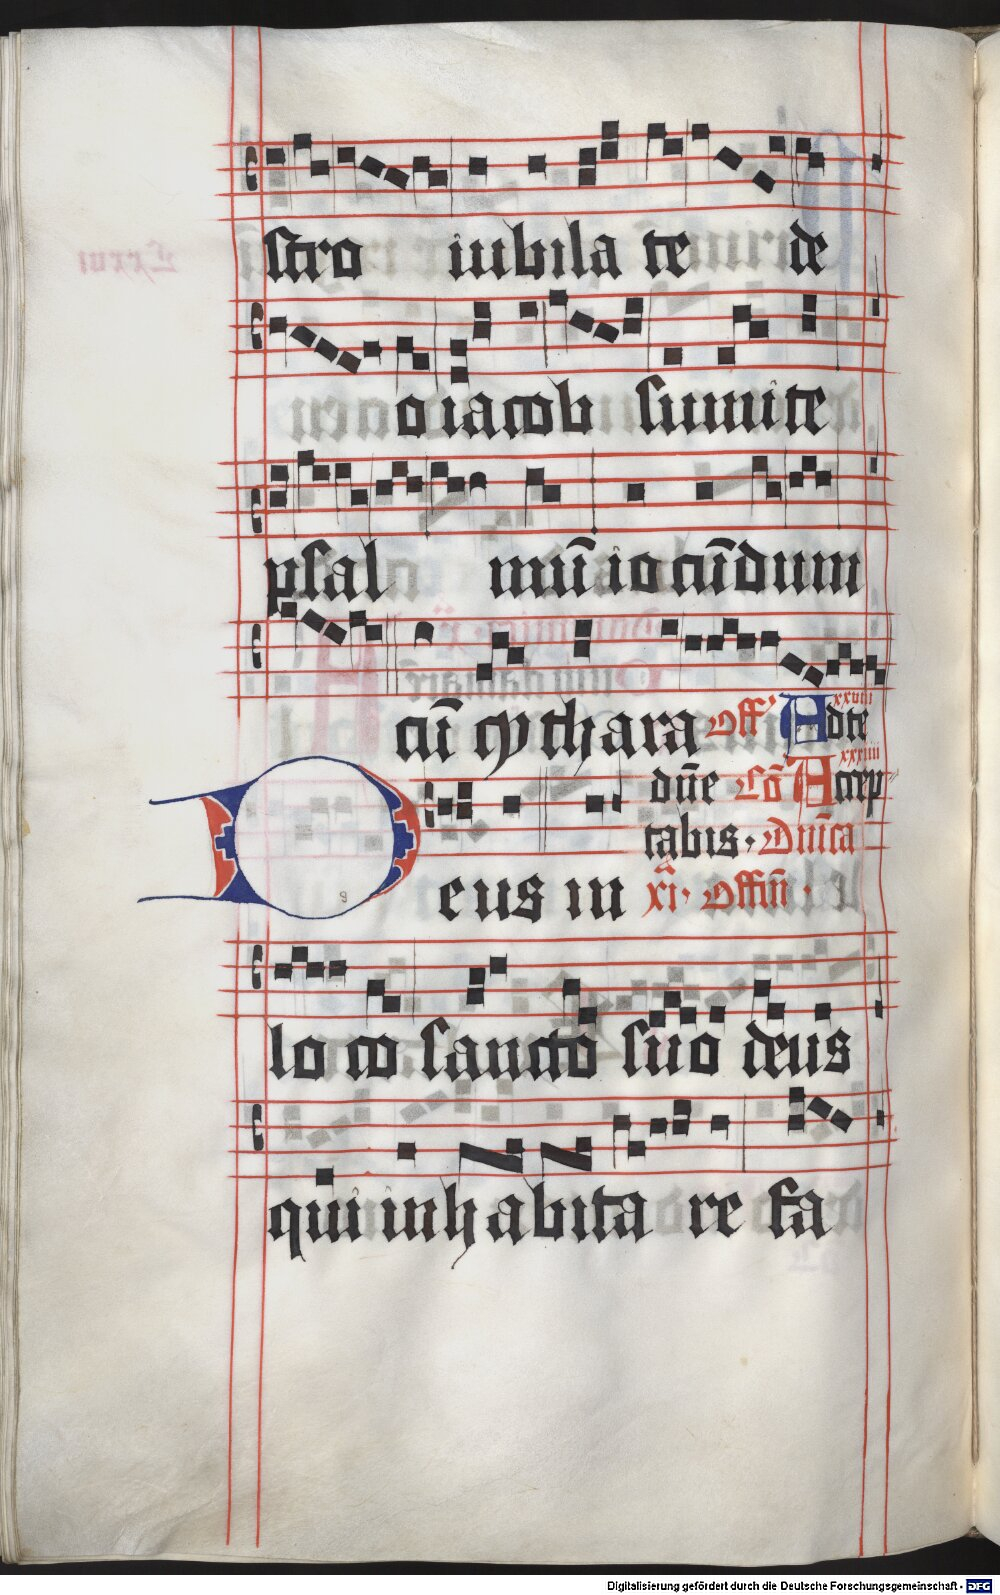 stro iubila te de
o iacob sumite
psal mū iocūdum
cū cythara Off' Ad te xxviii
dn̄e Cō Accep xxxiiii
tabis. Dnīca
D eus in xi. Offm̄.
lo co sancto suo deus
qui inh abita re fa
Digitalisierung gefördert durch die Deutsche Forschungsgemeinschaft - DFG